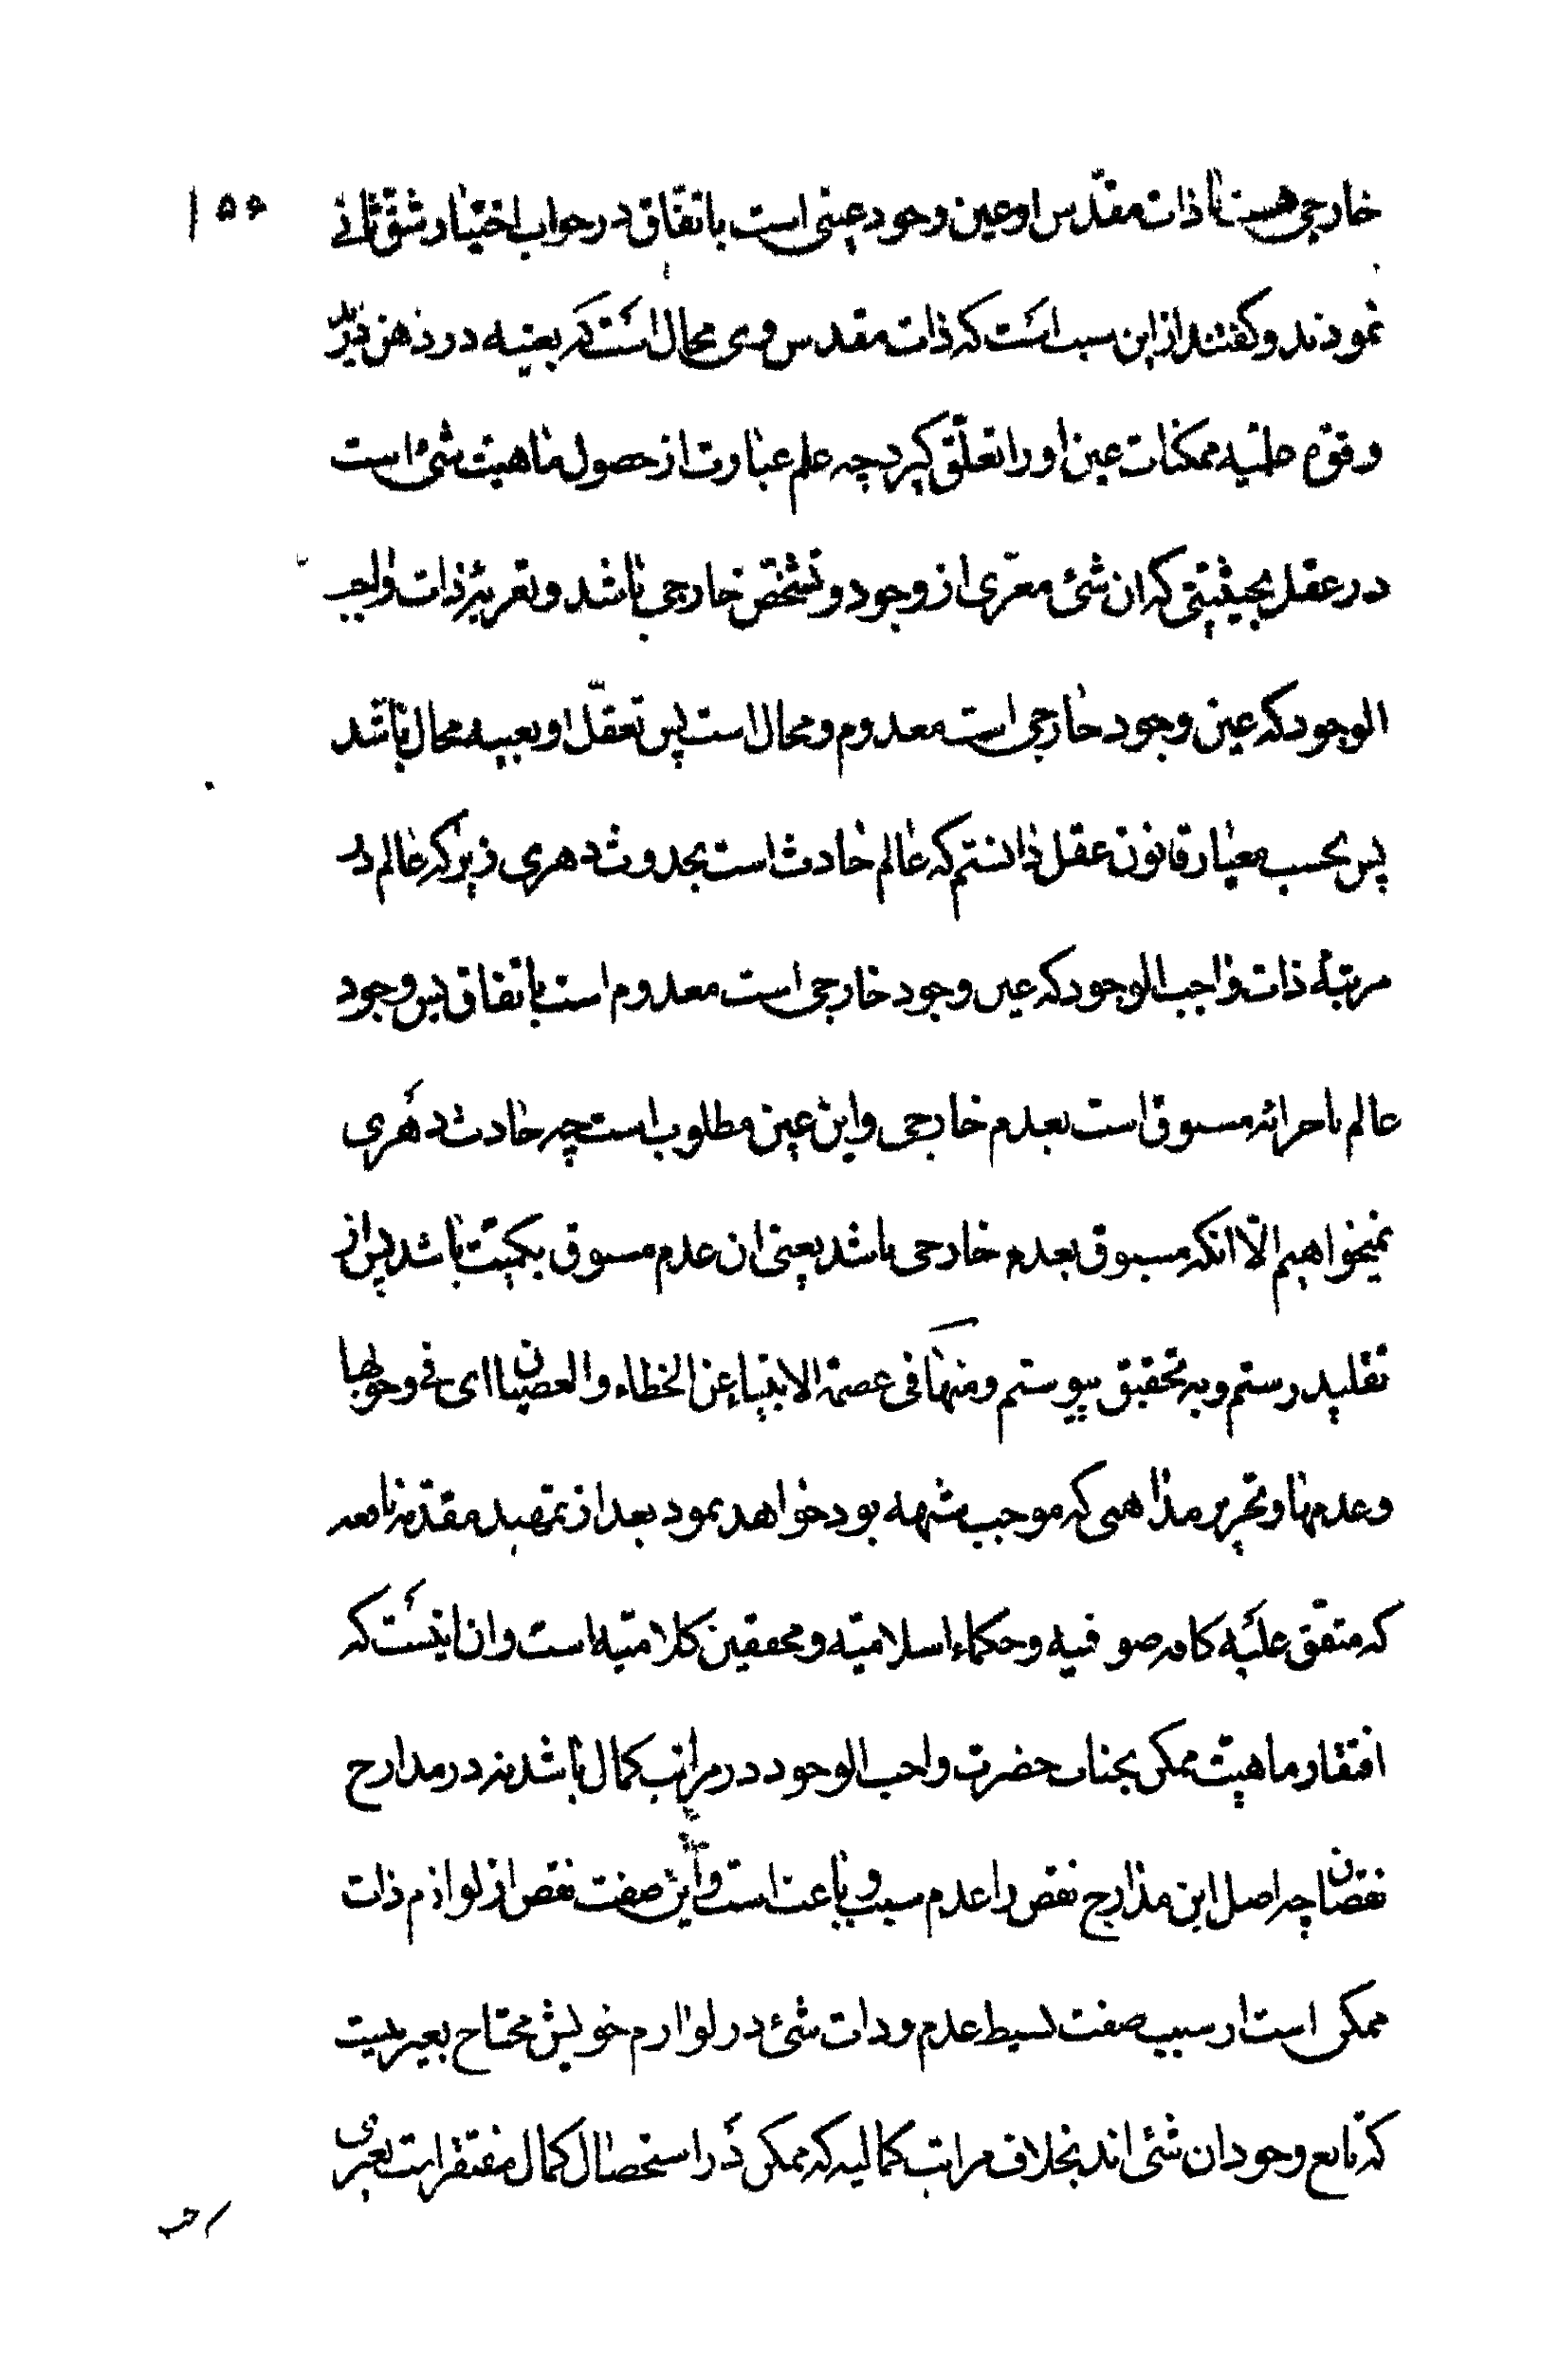 ۱۵۶
خارجی هست یا ذات مقدّس او عین وجود عینی است باتفاق در جواب اختیار شقّ ثانی
نمودند و کفتند از این سبب است که ذات مقدس وی محال است که بعینه در ذهن در
و قوّه ممکنات عین او را تعلّق کیرد چه علم عبارت از حصول ماهیت شیٔ است
در عقل بحیثیتی که ان شئ معرّی از وجود و تشخّص خارجی باشد و تعریۀ ذات واجب
الوجود که عین وجود خارجی است معدوم و محال است پس تعقّل او بعینه محال باشد
پس بحسب معیار قانون عقل دانستم که عالم حادث است بحدوث دهری زیرا که عالم در
مرتبۀ ذات واجب الوجود که عین وجود خارجی است معدوم است باتفاق پس وجود
عالم باجزائه مسبوق است بعدم خارجی و این عین مطلوب است چه حادث دهری
نمیخواهیم الّا انکه مسبوق بعدم خارجی باشد یعنی ان عدم مسبوق بکمیّت باشد پس از
تقلید رستم و به تحقیق پیوستم ومنها فی عصمة الانبیاء عن الخطاء والعصیان ای فی وجوبها
وعدمها و تحریر مذاهبی که موجب شبهه بود خواهد نمود بعد از تمهید مقدّمه نافعه
که متفق علیه کافه صوفیه و حکماء اسلامیّه و محققین کلامیّه است و ان اینست که
افتقار ماهیّت ممکن بجناب حضرت واجب الوجود در مراتب کمال باشد نه در مدارج
نقصان چه اصل این مدارج نقص را عدم سبب و باعث است و این صفت نقص از لوازم ذات
ممکن است از سبب صفت بسیط عدم و ذات شئ در لوازم خویش محتاج بغیر نیست
که تابع وجود ان شئ اند بخلاف مراتب کمالیه که ممکن در استحصال کمال مفتقر است بغیری